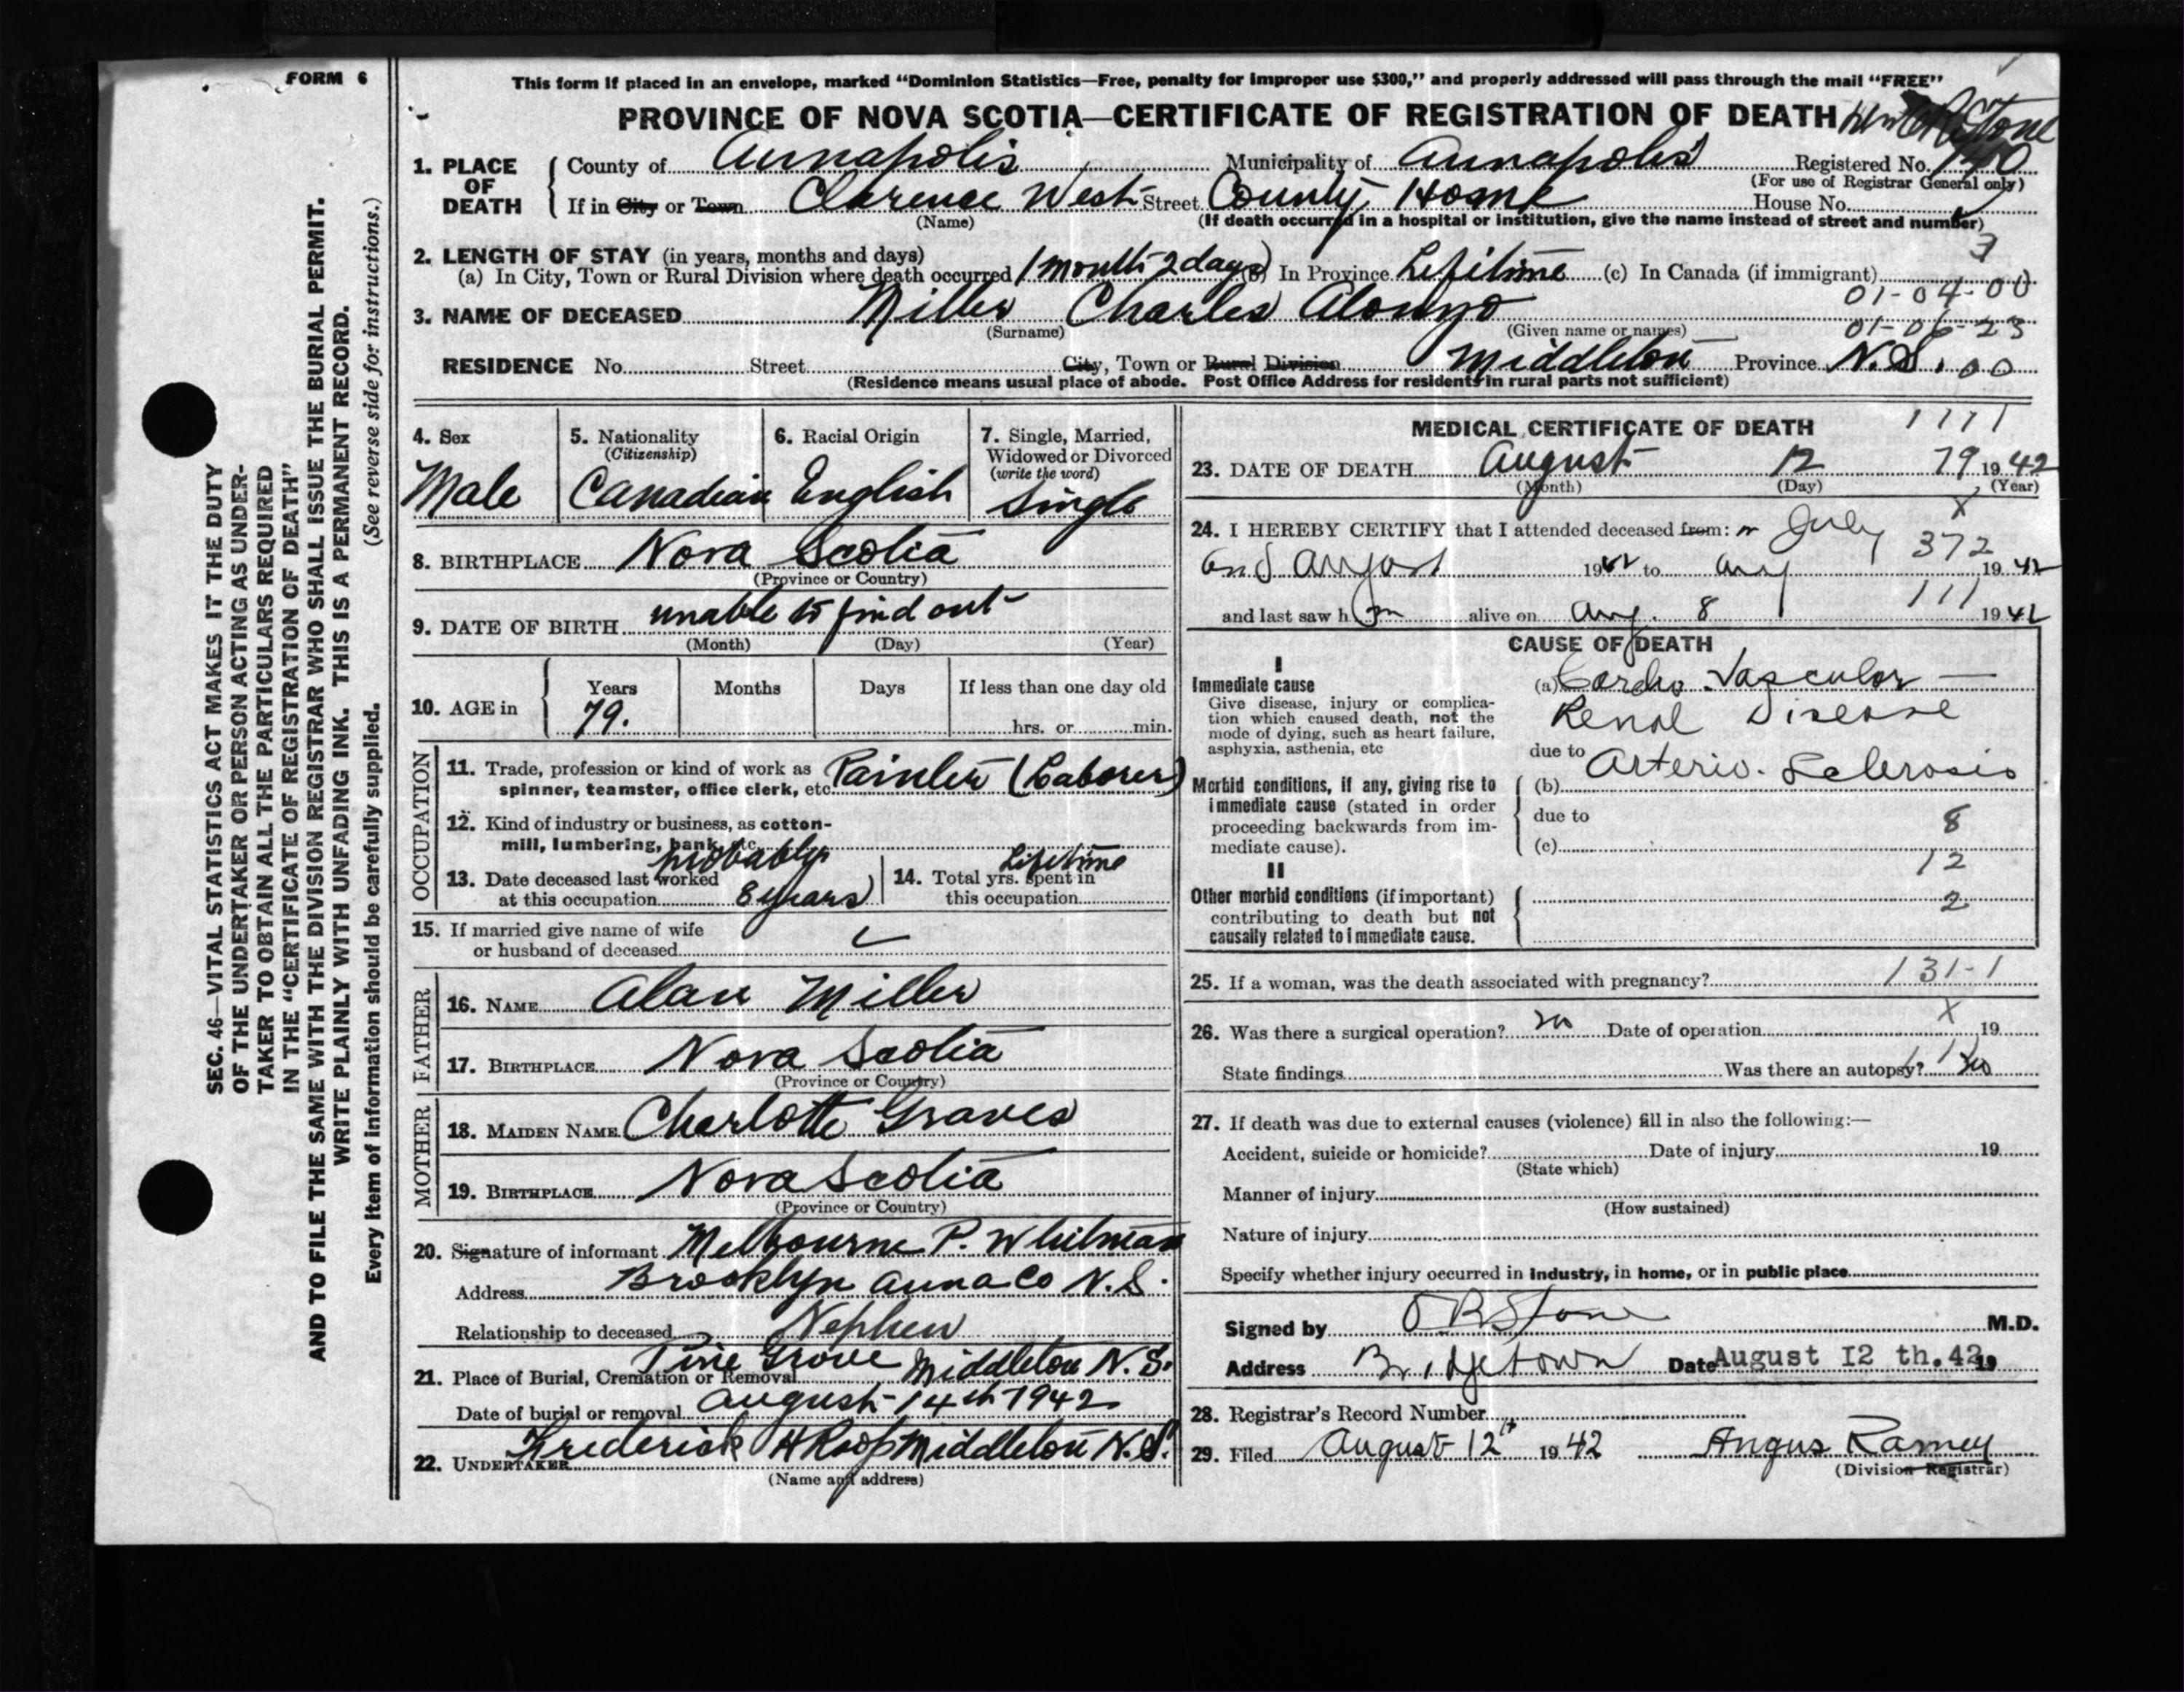 FORM 6
This form if placed in an envelope, marked "Dominion Statistics—Free, penalty for improper use $300," and properly addressed will pass through the mail "FREE"
PROVINCE OF NOVA SCOTIA—CERTIFICATE OF REGISTRATION OF DEATH
SEC. 46—VITAL STATISTICS ACT MAKES IT THE DUTY
OF THE UNDERTAKER OR PERSON ACTING AS UNDER-
TAKER TO OBTAIN ALL THE PARTICULARS REQUIRED
IN THE "CERTIFICATE OF REGISTRATION OF DEATH"
AND TO FILE THE SAME WITH THE DIVISION REGISTRAR WHO SHALL ISSUE THE BURIAL PERMIT.
WRITE PLAINLY WITH UNFADING INK. THIS IS A PERMANENT RECORD.
Every item of information should be carefully supplied. (See reverse side for instructions.)
1. PLACE OF DEATH County of Annapolis Municipality of Annapolis Registered No.
(For use of Registrar General only)
If in City or Town Clarence West Street County Home House No.
(Name) (If death occurred in a hospital or institution, give the name instead of street and number)
2. LENGTH OF STAY (in years, months and days) 3
(a) In City, Town or Rural Division where death occurred 1 month 2 days (b) In Province Lifetime (c) In Canada (if immigrant)
01-04-00
3. NAME OF DECEASED Miller Charles Alonzo
(Surname) (Given name or names) 01-06-23
RESIDENCE No. Street City, Town or Rural Division Middleton Province N.S. 00
(Residence means usual place of abode. Post Office Address for residents in rural parts not sufficient)
4. Sex 5. Nationality (Citizenship) 6. Racial Origin 7. Single, Married, Widowed or Divorced (write the word)
Male Canadian English Single
8. BIRTHPLACE Nova Scotia
(Province or Country)
9. DATE OF BIRTH unable to find out
(Month) (Day) (Year)
10. AGE in Years Months Days If less than one day old
79. hrs. or min.
OCCUPATION
11. Trade, profession or kind of work as spinner, teamster, office clerk, etc. Painter (Laborer)
12. Kind of industry or business, as cotton-mill, lumbering, bank, etc.
13. Date deceased last worked at this occupation probably 8 years
14. Total yrs. spent in this occupation Lifetime
15. If married give name of wife or husband of deceased
FATHER
16. NAME Alan Miller
17. BIRTHPLACE Nova Scotia
(Province or Country)
MOTHER
18. MAIDEN NAME Charlotte Graves
19. BIRTHPLACE Nova Scotia
(Province or Country)
20. Signature of informant Melbourne P. Whitman
Address Brooklyn Anna Co N.S.
Relationship to deceased Nephew
21. Place of Burial, Cremation or Removal Pine Grove Middleton N.S.
Date of burial or removal August 14th 1942
22. UNDERTAKER Frederick H Roop Middleton N.S.
(Name and address)
1111
MEDICAL CERTIFICATE OF DEATH
23. DATE OF DEATH August 12 79 1942
(Month) (Day) (Year)
X
24. I HEREBY CERTIFY that I attended deceased from: in July
372
and August 1942 to Aug 1942
111
and last saw him alive on Aug. 8 1942
CAUSE OF DEATH
I
Immediate cause
Give disease, injury or complication which caused death, not the mode of dying, such as heart failure, asphyxia, asthenia, etc
(a) Cardio-Vascular—
Renal Disease
due to
Morbid conditions, if any, giving rise to immediate cause (stated in order proceeding backwards from immediate cause).
(b) Arterio-Sclerosis
due to 8
(c)
12
II
Other morbid conditions (if important) contributing to death but not causally related to immediate cause.
2
25. If a woman, was the death associated with pregnancy? 131-1
26. Was there a surgical operation? no Date of operation X 19
State findings Was there an autopsy? no
27. If death was due to external causes (violence) fill in also the following:—
Accident, suicide or homicide? Date of injury 19
(State which)
Manner of injury
(How sustained)
Nature of injury
Specify whether injury occurred in industry, in home, or in public place
Signed by Stone M.D.
Address Bridgetown Date August 12 th. 42 19
28. Registrar's Record Number
29. Filed August 12th 1942 Angus Ramey
(Division Registrar)